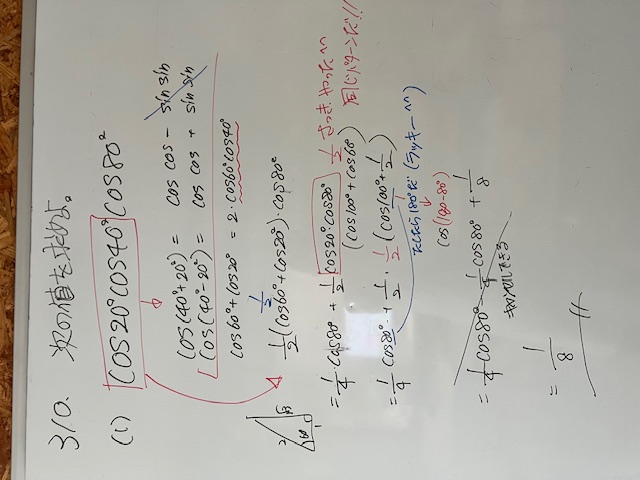 310. 次の値を求めよ。
(1) cos20°cos40°cos80°
cos(40°+20°) = cos cos - sin sin
cos(40°-20°) = cos cos + sin sin
cos60°+cos20° = 2·cos60°cos40°
1/2(cos60°+cos20°)·cos80°
1/2
2 60° 1 √3
= 1/4·cos80° + 1/2 cos20°cos80°
1/2 さっきやったへへ
同じパターンだ!!
(cos100°+cos60°)
= 1/4 cos80° + 1/2 · 1/2 (cos100°+1/2)
たしたら180°だ (ラッキーへへ)
cos(180-80°)
= 1/4 cos80° - 1/4 cos80° + 1/8
= 1/8